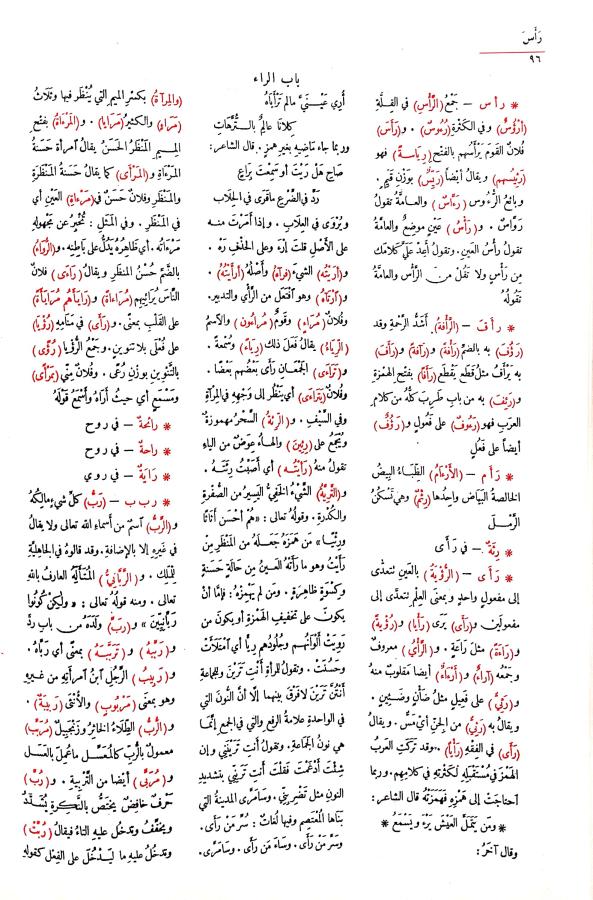 رَأَسَ
٩٦
باب الراء
* ر أ س – جَمْعُ (الرَّأْسِ) في القِلَّة
(أَرْؤُسٌ) وفي الكَثْرة (رُءُوسٌ) . و(رَأَسَ)
فُلانٌ القومَ يَرْأَسُهم بالفتح (رِيَاسةً) فهو
(رَئِيسُهم) ويقالُ أيضاً (رَيِّسٌ) بوَزْنِ قَيِّمٍ .
وبائعُ الرُّءُوس (رَءَّاسٌ) والعامَّةُ تقولُ
رَوَّاسٌ . و(رَأْسُ) عَيْنٍ موضعٌ والعامَّةُ
تقولُ رأسُ العَيْنِ . وتقولُ أَعِدْ عَلَيَّ كَلَامَك
مِن رَأْسٍ ولا تَقُلْ من الرَّأْسِ والعامَّةُ
تَقُولُهُ
* ر أ ف – (الرَّأْفَةُ) أَشَدُّ الرَّحْمةِ وقد
(رَؤُفَ) به بالضمِّ (رَأْفةً) و(رَآفةً) و(رَأَفَ)
به يَرْأَفُ مثلُ قَطَعَ يَقْطَعُ (رَأْفًا) بفتح الهَمْزةِ
و(رَئِفَ) به من بابِ طَرِبَ كلُّه من كلامِ
العرَبِ فهو (رَءُوفٌ) على فَعُولٍ و(رَؤُفٌ)
أيضاً على فَعُلٍ
* ر أ م – (الأَرْءَامُ) الظِّباءُ البِيضُ
الخالصةُ البَيَاضِ واحِدُها (رِئْمٌ) وهي تَسْكُنُ
الرَّمْلَ
* رِئَةٌ – في ر أ ى
* ر أ ى – (الرُّؤْيَةُ) بالعَيْنِ تَتَعدَّى
إلى مفعولٍ واحدٍ وبمعنَى العِلْمِ تتعدَّى إلى
مفعولَيْن و(رَأَى) يَرَى (رَأْيًا) و(رُؤْيةً)
و(رَاءَةً) مثلُ رَاعَةٍ . و(الرَّأْيُ) معروفٌ
وجَمْعُه (آراءٌ) و(أَرْءاءٌ) أيضا مَقلوبٌ منهُ
و(رَئِيٌّ) على فَعِيلٍ مثلُ ضَأْنٍ وضَئِينٍ .
ويقالُ به (رَئِيٌّ) من الجِنِّ أي مَسٌّ . ويقالُ
(رَأَى) في الفِقْهِ (رَأْيًا) . وقد تَرَكَتِ العَرَبُ
الهَمْزَ في مُسْتَقْبَلِهِ لكَثْرتِهِ في كلامِهِم . وربما
احتاجَتْ إلى هَمْزِهِ فهَمَزَتْهُ قال الشاعر :
* ومَن يَتَمَلَّ العَيْشَ يَرْءَ ويَسْمَعُ *
وقال آخَرُ :
أُرِي عَيْنَيَّ مالم تَرْأَياهُ
كِلانا عالِمٌ بالتُّرَّهَاتِ
وربما جاءَ ماضِيهِ بغيرِ همزٍ . قال الشاعر :
صَاحِ هَلْ رَيْتَ أو سَمِعْتَ بِرَاعٍ
رَدَّ في الضَّرْعِ ما قَرَى في الحِلَابِ
ويُرْوَى في العِلَابِ . وإذا أَمَرْتَ منه
على الأَصْلِ قلتَ اِرْءَ وعلى الحذْفِ رَهْ .
و(أَرَيْتُهُ) الشيءَ (فرآهُ) وأَصْلُهُ (أَرْأَيْتُهُ) .
و(ارْتَآهُ) وهو افْتَعَلَ من الرَّأْيِ والتدبيرِ .
وفُلانٌ (مُراءٍ) وقَوْمٌ (مُراءُونَ) والاسمُ
(الرِّياءُ) يقالُ فَعَلَ ذاك (رِياءً) وسُمْعةً .
و(تَرَاءَى) الجَمْعانِ رأى بعضُهم بَعضًا .
وفُلانٌ (يَتَراءَى) أي يَنْظُرُ إلى وَجْهِهِ في المِرْآةِ
وفي السَّيْفِ . و(الرِّئةُ) السَّحْرُ مهموزةٌ
ويُجمَعُ على (رِئِينَ) والهاءُ عِوَضٌ من الياءِ
تقول منهُ (رَأَيْتُه) أي أَصَبْتُ رِئَتَهُ .
و(التَّرِيَّةُ) الشَّيْءُ الخَفِيُّ اليَسيرُ من الصُّفْرةِ
والكُدْرةِ . وقولُهُ تعالى : «هُمْ أحسَنُ أثَاثًا
ورِئْيًا» مَن هَمَزَهُ جَعَلَهُ من المنظَرِ مِنْ
رَأَيْتُ وهو ما رَأَتْهُ العَيْنُ مِن حالَةٍ حَسَنةٍ
وكِسْوةٍ ظاهِرةٍ . ومَن لم يَهمِزْهُ : فإمَّا أن
يكونَ على تخفيفِ الهَمْزةِ أو يكونَ من
رَوِيَتْ ألوَانُهم وجُلُودُهم رِيًّا أي امْتَلَأَتْ
وحَسُنَتْ . وتقولُ للمرأةِ أنتِ تَرَيْنَ وللجماعةِ
أنتُنَّ تَرَيْنَ لا فَرْقَ بينهما إلَّا أنَّ النُّونَ التي
في الواحدةِ علامةُ الرفعِ والتي في الجمعِ إنَّما
هي نونُ الجماعةِ . وتقولُ أنتِ تَرَيْنَنِي وإن
شِئْتَ أَدْغَمْتَ فقلتَ أنتِ تَرَيِنِّي بتشديدِ
النونِ مثل تَضْرِبِنِّي . وسَامَرَّى المدينةُ التي
بناها المُعتصِمُ وفيها لُغاتٌ : سُرَّ مَنْ رَأَى .
وسَرَّ مَنْ رَأَى . وسَاءَ مَن رَأَى . وسَامَرَّى .
و(المِرآةُ) بكسْرِ الميم التي يُنْظَرُ فيها وثَلَاثُ
(مَرَاءٍ) والكثيرُ (مَرَايا) . و(المَرْءَاةُ) بفتحِ
الميمِ المَنْظَرُ الحَسَنُ يقالُ امرأةٌ حَسَنَةُ
المَرْآةِ و(المَرْأَى) كما يقالُ حَسَنةُ المَنْظَرةِ
والمَنظَرِ وفلانٌ حَسَنٌ في (مَرْءَاةِ) العَيْنِ أي
في المَنظَرِ . وفي المَثَلِ : تُخْبِرُ عن مَجْهولِهِ
مَرْءَاتُه . أي ظاهِرُهُ يَدُلُّ على باطِنِه . و(الرُّوَاءُ)
بالضَّمِّ حُسْنُ المنظَرِ ويقالُ (رَاءَى) فلانٌ
النَّاسَ يُرائِيهِم (مُرَاءاةً) و(رَايَأَهُم مُرَايَأَةً)
على القَلْبِ بمعنًى . و(رَأَى) في مَنَامِهِ (رُؤْيَا)
على فُعْلَى بلا تنوينٍ . وجَمْعُ الرُّؤْيا (رُؤًى)
بالتَّنْوينِ بوزْنِ رُعًى . وفلانٌ مِنِّي (بمَرْأًى)
ومَسْمَعٍ أي حيثُ أراهُ وأسْمَعُ قولَهُ
* رائحةٌ – في ر و ح
* راحةٌ – في ر و ح
* رَايَةٌ – في ر و ي
* ر ب ب – (رَبُّ) كلِّ شيءٍ مالِكُهُ
و(الرَّبُّ) اسمٌ من أسماءِ الله تعالى ولا يقالُ
في غيرِهِ إلا بالإضافةِ . وقد قالوهُ في الجاهليَّةِ
لِلْمَلِكِ . و(الرَّبَّانِيُّ) المُتَأَلِّهُ العارفُ بالله
تعالى . ومنه قولُهُ تعالى : «ولكِنْ كُونُوا
رَبَّانِيِّينَ» و(رَبَّ) وَلَدَهُ من بابِ ردَّ
و(رَبَّبَهُ) و(تَرَبَّبَهُ) بمعنًى أي رَبَّاهُ .
و(رَبِيبُ) الرَّجُلِ ابنُ امرأَتِهِ من غيرِهِ
وهو بمعنَى (مَرْبُوبٍ) والأُنْثَى (رَبِيبَةٌ) .
و(الرُّبُّ) الطِّلاءُ الخاثرُ وزَنْجَبِيلٌ (مُرَبَّبٌ)
معمولٌ بالرُّبِّ كالمُعَسَّلِ ما عُمِلَ بالعَسَلِ
و(مُرَبًّى) أيضا من التَّرْبِيةِ . و(رُبَّ)
حَرْفٌ خافِضٌ يَختصُّ بالنَّكِرةِ يُشَدَّدُ
ويخفَّفُ وتدخُلُ عليهِ التاءُ فيقالُ (رُبَّتْ)
وتدخُلُ عليهِ ما لِيَدْخُلَ على الفِعْلِ كقولِهِ